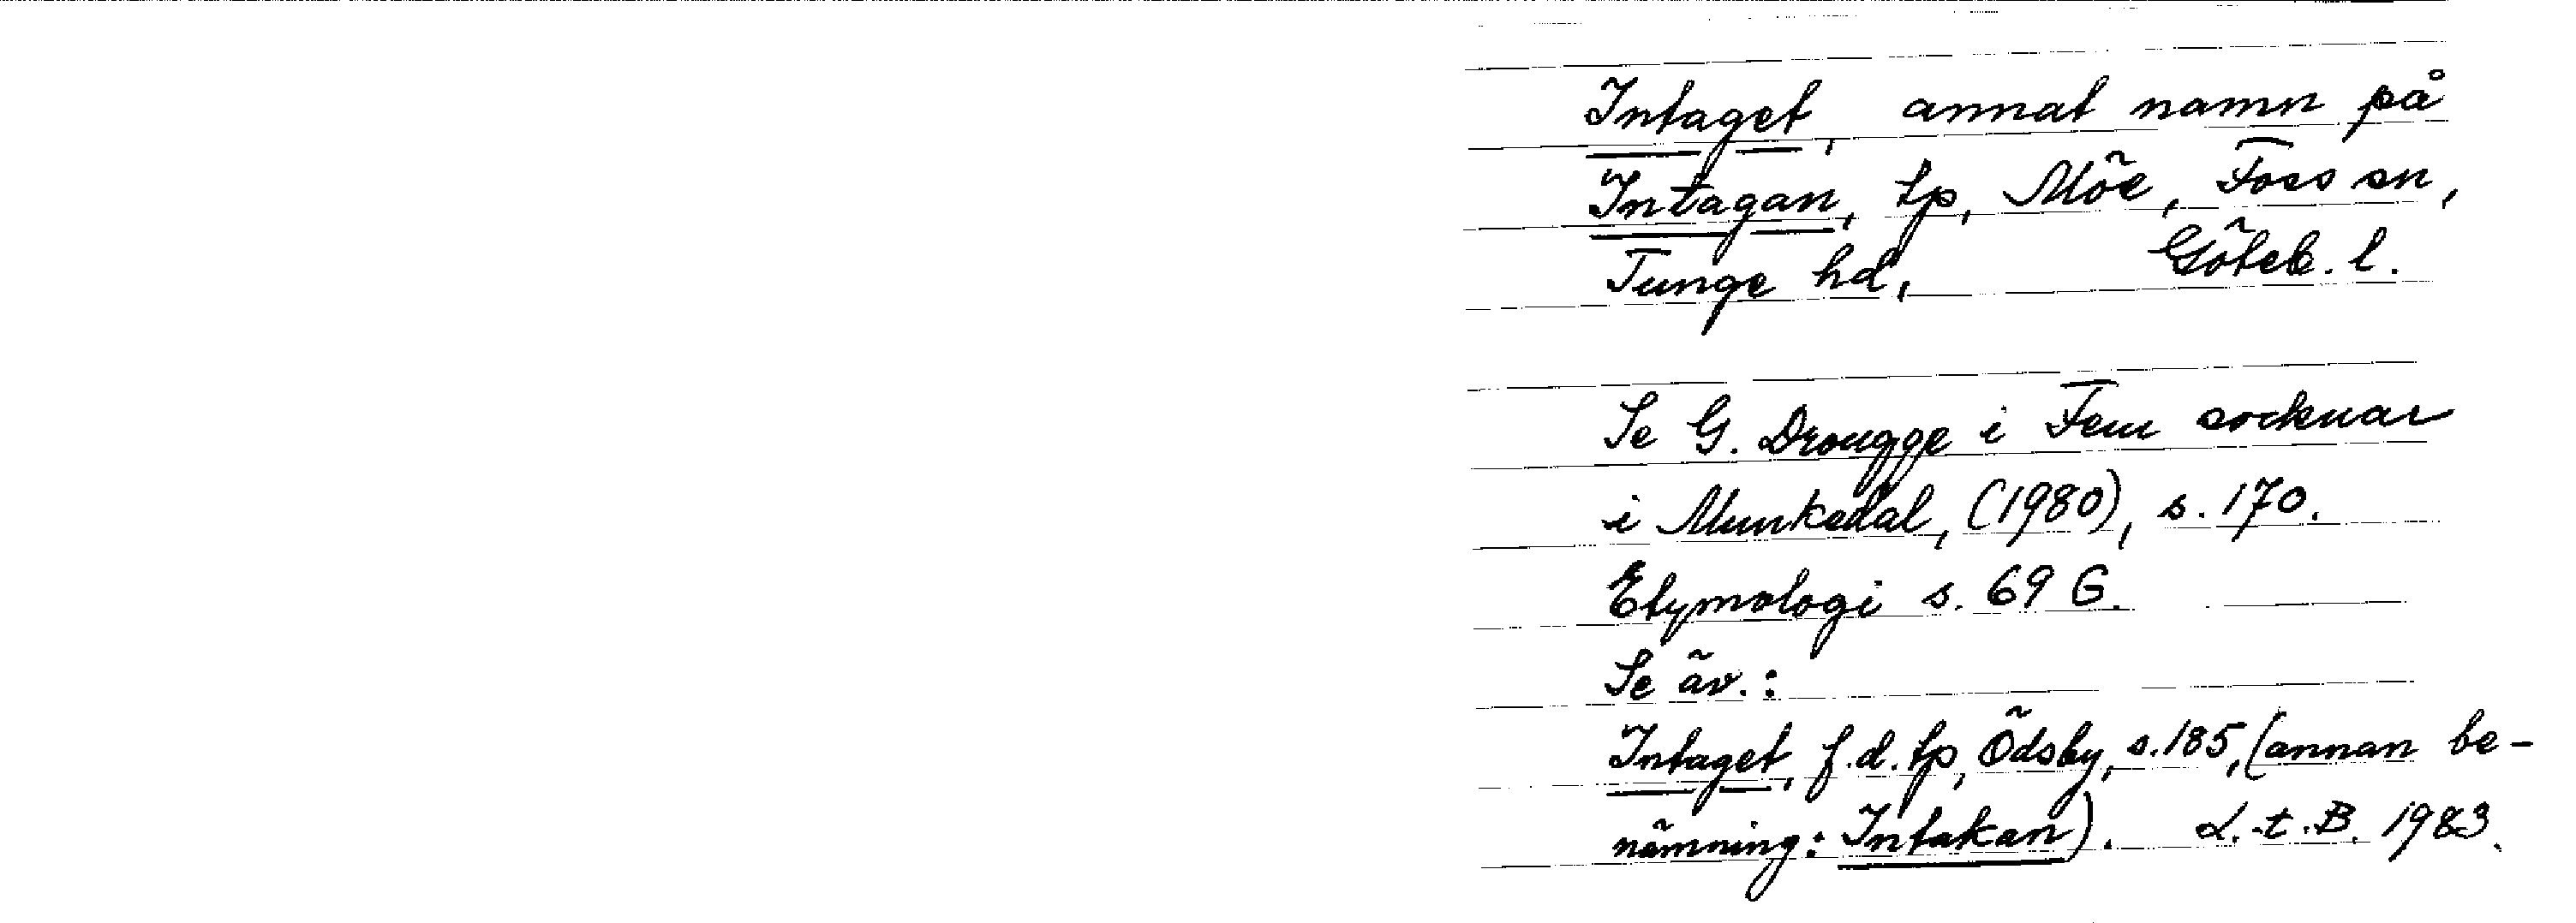 Intaget, annat namn på
Intagan, tp, Möe, Foss sn,
Tunge hd, Göteb. l.
Se G. Drougge i Fem socknar
i Munkedal, (1980), s. 170.
Etymologi s. 69 G.
Se äv.:
Intaget, f.d. tp, Ödsby, s. 185, (annan be-
nämning: Intakan). L.t.B. 1983.